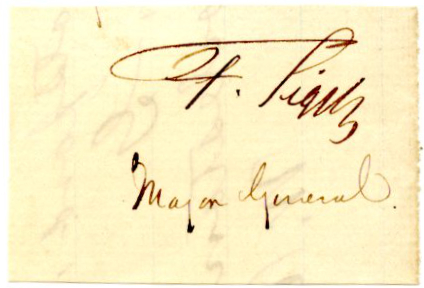 F. Sigel
Major General.